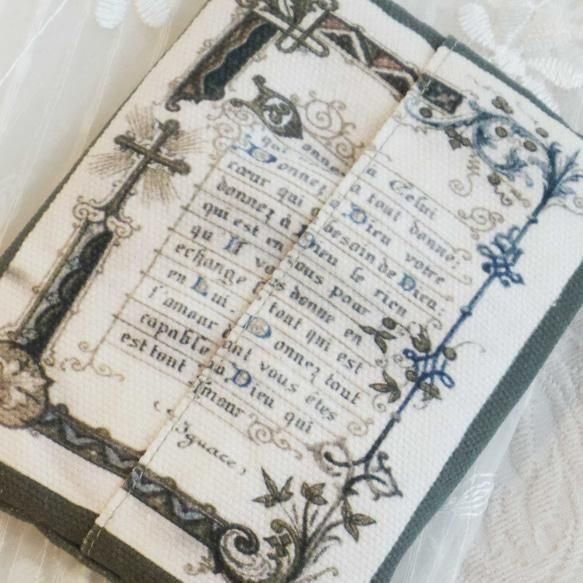 Donnez a Celui
qui a tout donné:
Donnez à Dieu votre
cœur qui a besoin de Dieu:
donnez à Dieu le rien
qui est en vous pour
qu Il vous donne en
echange tout qui est
en Lui. Donnez tout
l'amour dont vous êtes
capable au Dieu qui
est tout Amour
Ignace,